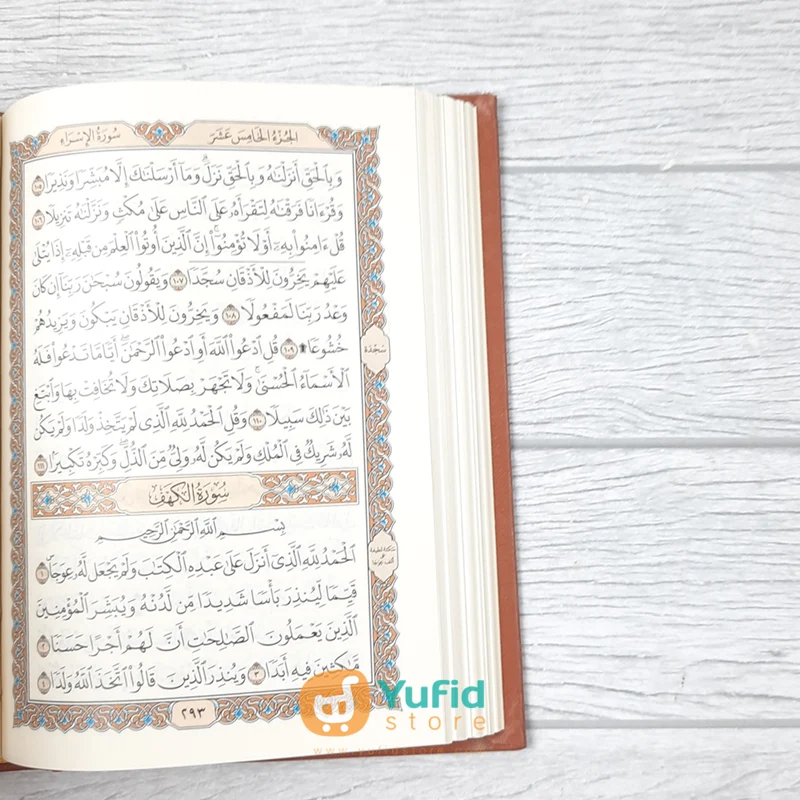 سُورَةُ الإِسْرَاءِ
الجُزْءُ الخَامِسَ عَشَرَ
وَبِٱلْحَقِّ أَنزَلْنَٰهُ وَبِٱلْحَقِّ نَزَلَۗ وَمَآ أَرْسَلْنَٰكَ إِلَّا مُبَشِّرٗا وَنَذِيرٗا ١٠٥
وَقُرْءَانٗا فَرَقْنَٰهُ لِتَقْرَأَهُۥ عَلَى ٱلنَّاسِ عَلَىٰ مُكْثٖ وَنَزَّلْنَٰهُ تَنزِيلٗا ١٠٦
قُلْ ءَامِنُواْ بِهِۦٓ أَوْ لَا تُؤْمِنُوٓاْۚ إِنَّ ٱلَّذِينَ أُوتُواْ ٱلْعِلْمَ مِن قَبْلِهِۦٓ إِذَا يُتْلَىٰ
عَلَيْهِمْ يَخِرُّونَ لِلْأَذْقَانِ سُجَّدٗا ١٠٧ وَيَقُولُونَ سُبْحَٰنَ رَبِّنَآ إِن كَانَ
وَعْدُ رَبِّنَا لَمَفْعُولٗا ١٠٨ وَيَخِرُّونَ لِلْأَذْقَانِ يَبْكُونَ وَيَزِيدُهُمْ
خُشُوعٗا ۩ ١٠٩ قُلِ ٱدْعُواْ ٱللَّهَ أَوِ ٱدْعُواْ ٱلرَّحْمَٰنَۖ أَيّٗا مَّا تَدْعُواْ فَلَهُ
ٱلْأَسْمَآءُ ٱلْحُسْنَىٰۚ وَلَا تَجْهَرْ بِصَلَاتِكَ وَلَا تُخَافِتْ بِهَا وَٱبْتَغِ
بَيْنَ ذَٰلِكَ سَبِيلٗا ١١٠ وَقُلِ ٱلْحَمْدُ لِلَّهِ ٱلَّذِي لَمْ يَتَّخِذْ وَلَدٗا وَلَمْ يَكُن
لَّهُۥ شَرِيكٞ فِي ٱلْمُلْكِ وَلَمْ يَكُن لَّهُۥ وَلِيّٞ مِّنَ ٱلذُّلِّۖ وَكَبِّرْهُ تَكْبِيرَۢا ١١١
سَجْدَة
سُورَةُ الكَهْفِ
بِسْمِ ٱللَّهِ ٱلرَّحْمَٰنِ ٱلرَّحِيمِ
ٱلْحَمْدُ لِلَّهِ ٱلَّذِيٓ أَنزَلَ عَلَىٰ عَبْدِهِ ٱلْكِتَٰبَ وَلَمْ يَجْعَل لَّهُۥ عِوَجَاۜ ١
قَيِّمٗا لِّيُنذِرَ بَأْسٗا شَدِيدٗا مِّن لَّدُنْهُ وَيُبَشِّرَ ٱلْمُؤْمِنِينَ
ٱلَّذِينَ يَعْمَلُونَ ٱلصَّٰلِحَٰتِ أَنَّ لَهُمْ أَجْرًا حَسَنٗا ٢
مَّٰكِثِينَ فِيهِ أَبَدٗا ٣ وَيُنذِرَ ٱلَّذِينَ قَالُواْ ٱتَّخَذَ ٱللَّهُ وَلَدٗا ٤
٢٩٣
Yufid
store